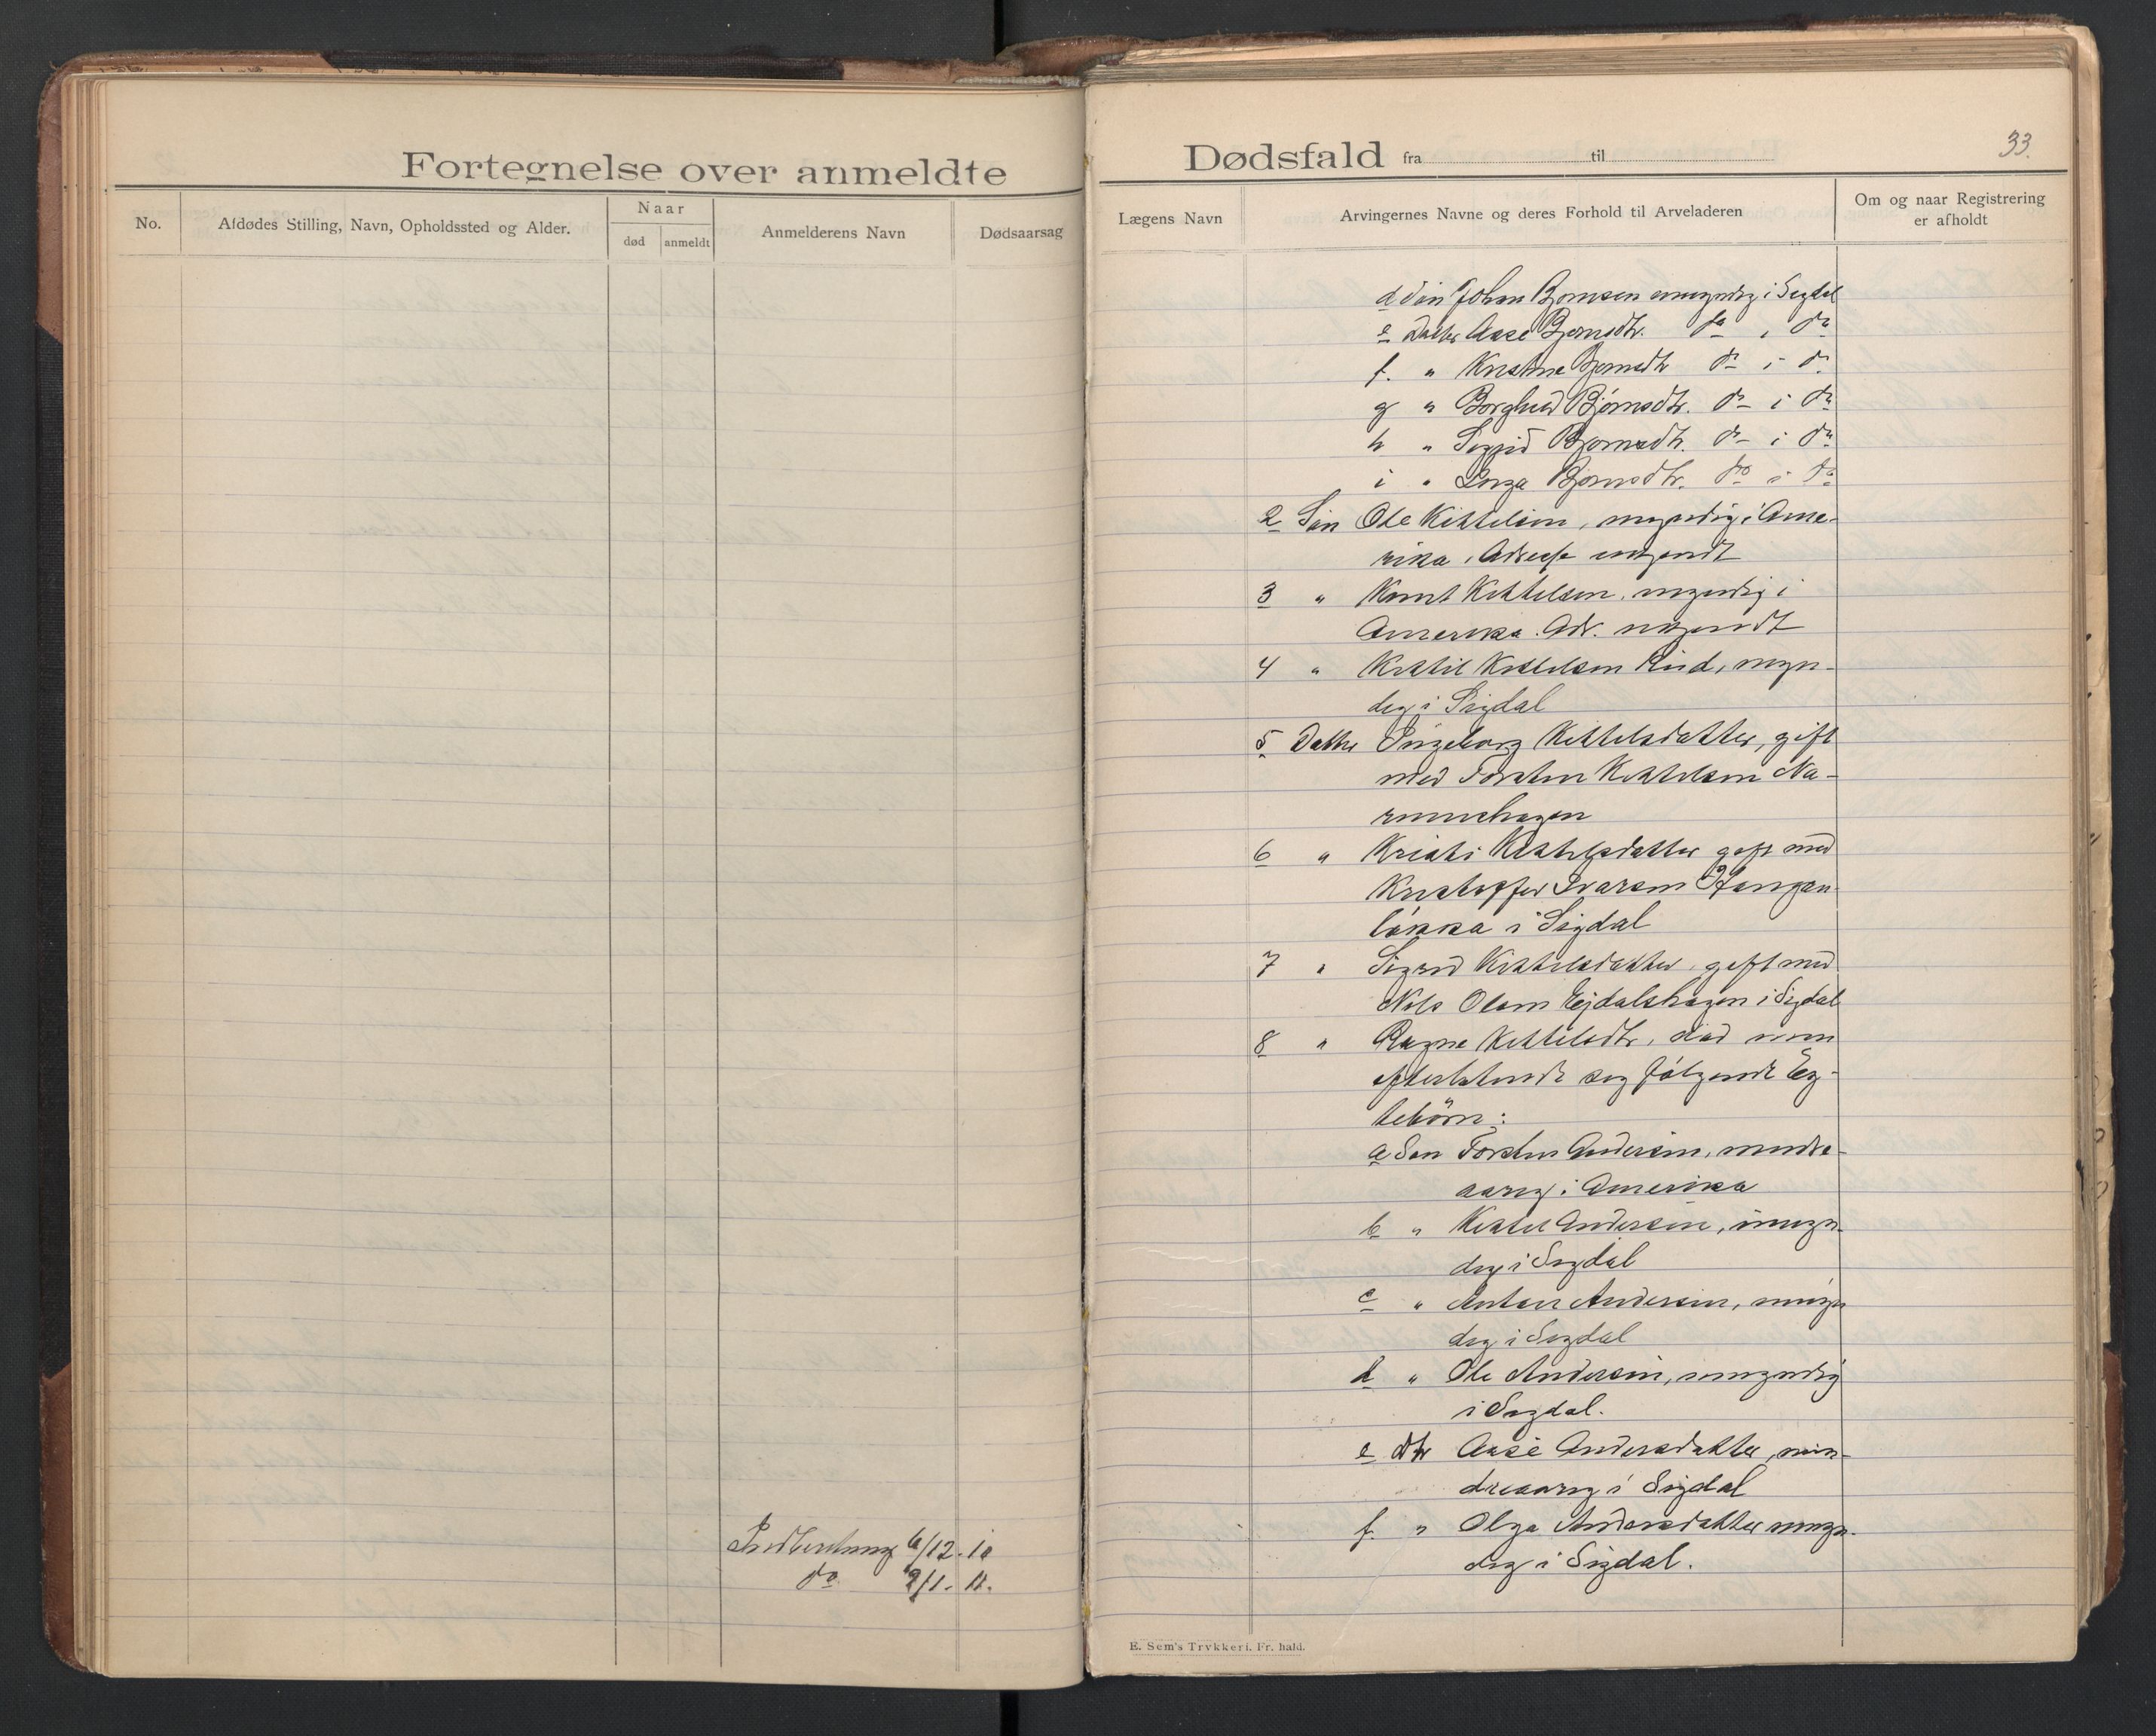 Fortegnelse over anmeldte
No.
Afdødes Stilling, Navn, Opholdssted og Alder.
Naar
død
anmeldt
Anmelderens Navn
Dødsaarsag
Indberetning 6/12. 10
do. 2/1. 11.
Dødsfald fra til
33.
Lægens Navn
Arvingernes Navne og deres Forhold til Arveladeren
Om og naar Registrering
er afholdt
d Søn Johan Bjørnsen umyndig i Sigdal
e Datter Aase Bjørnsdtr. do i do
f. " Kristine Bjørnsdtr do i do
g " Borghild Bjørnsdtr. do i do
h " Sigrid Bjørnsdtr. do i do
i " Inga Bjørnsdtr. do i do
2 Søn Ole Kittelsen, myndig i Ame-
rika, Adresse ukjendt
3 " Knut Kittelsen, myndig i
Amerika. Adr. ukjendt
4 " Kittil Kittelsen, myn-
dig i Sigdal
5 Datter Ingeborg Kittelsdatter, gift
med Torsten Kittelsen Na-
rumshagen
6 " Kristi Kittelsdatter gift med
Kristoffer Ivarsen Haugan-
løkka i Sigdal
7 " Sigrid Kittelsdatter, gift med
Nils Olsen Ejdalshagen i Sigdal
8 " Ragne Kittelsdtr, død men
efterlatende seg følgende Eg-
tebørn:
a Søn Torsten Andersen, mindre-
aarig i Amerika
b " Kittel Andersen, umyn-
dig i Sigdal
c " Anton Andersen, umyn
dig i Sigdal
d " Ole Andersen, umyndig
i Sigdal.
e dtr Aase Andersdatter, min-
dreaarig i Sigdal
f. " Olga Andersdatter umyn-
dig i Sigdal.
E. Sem's Trykkeri. Fr. hald.